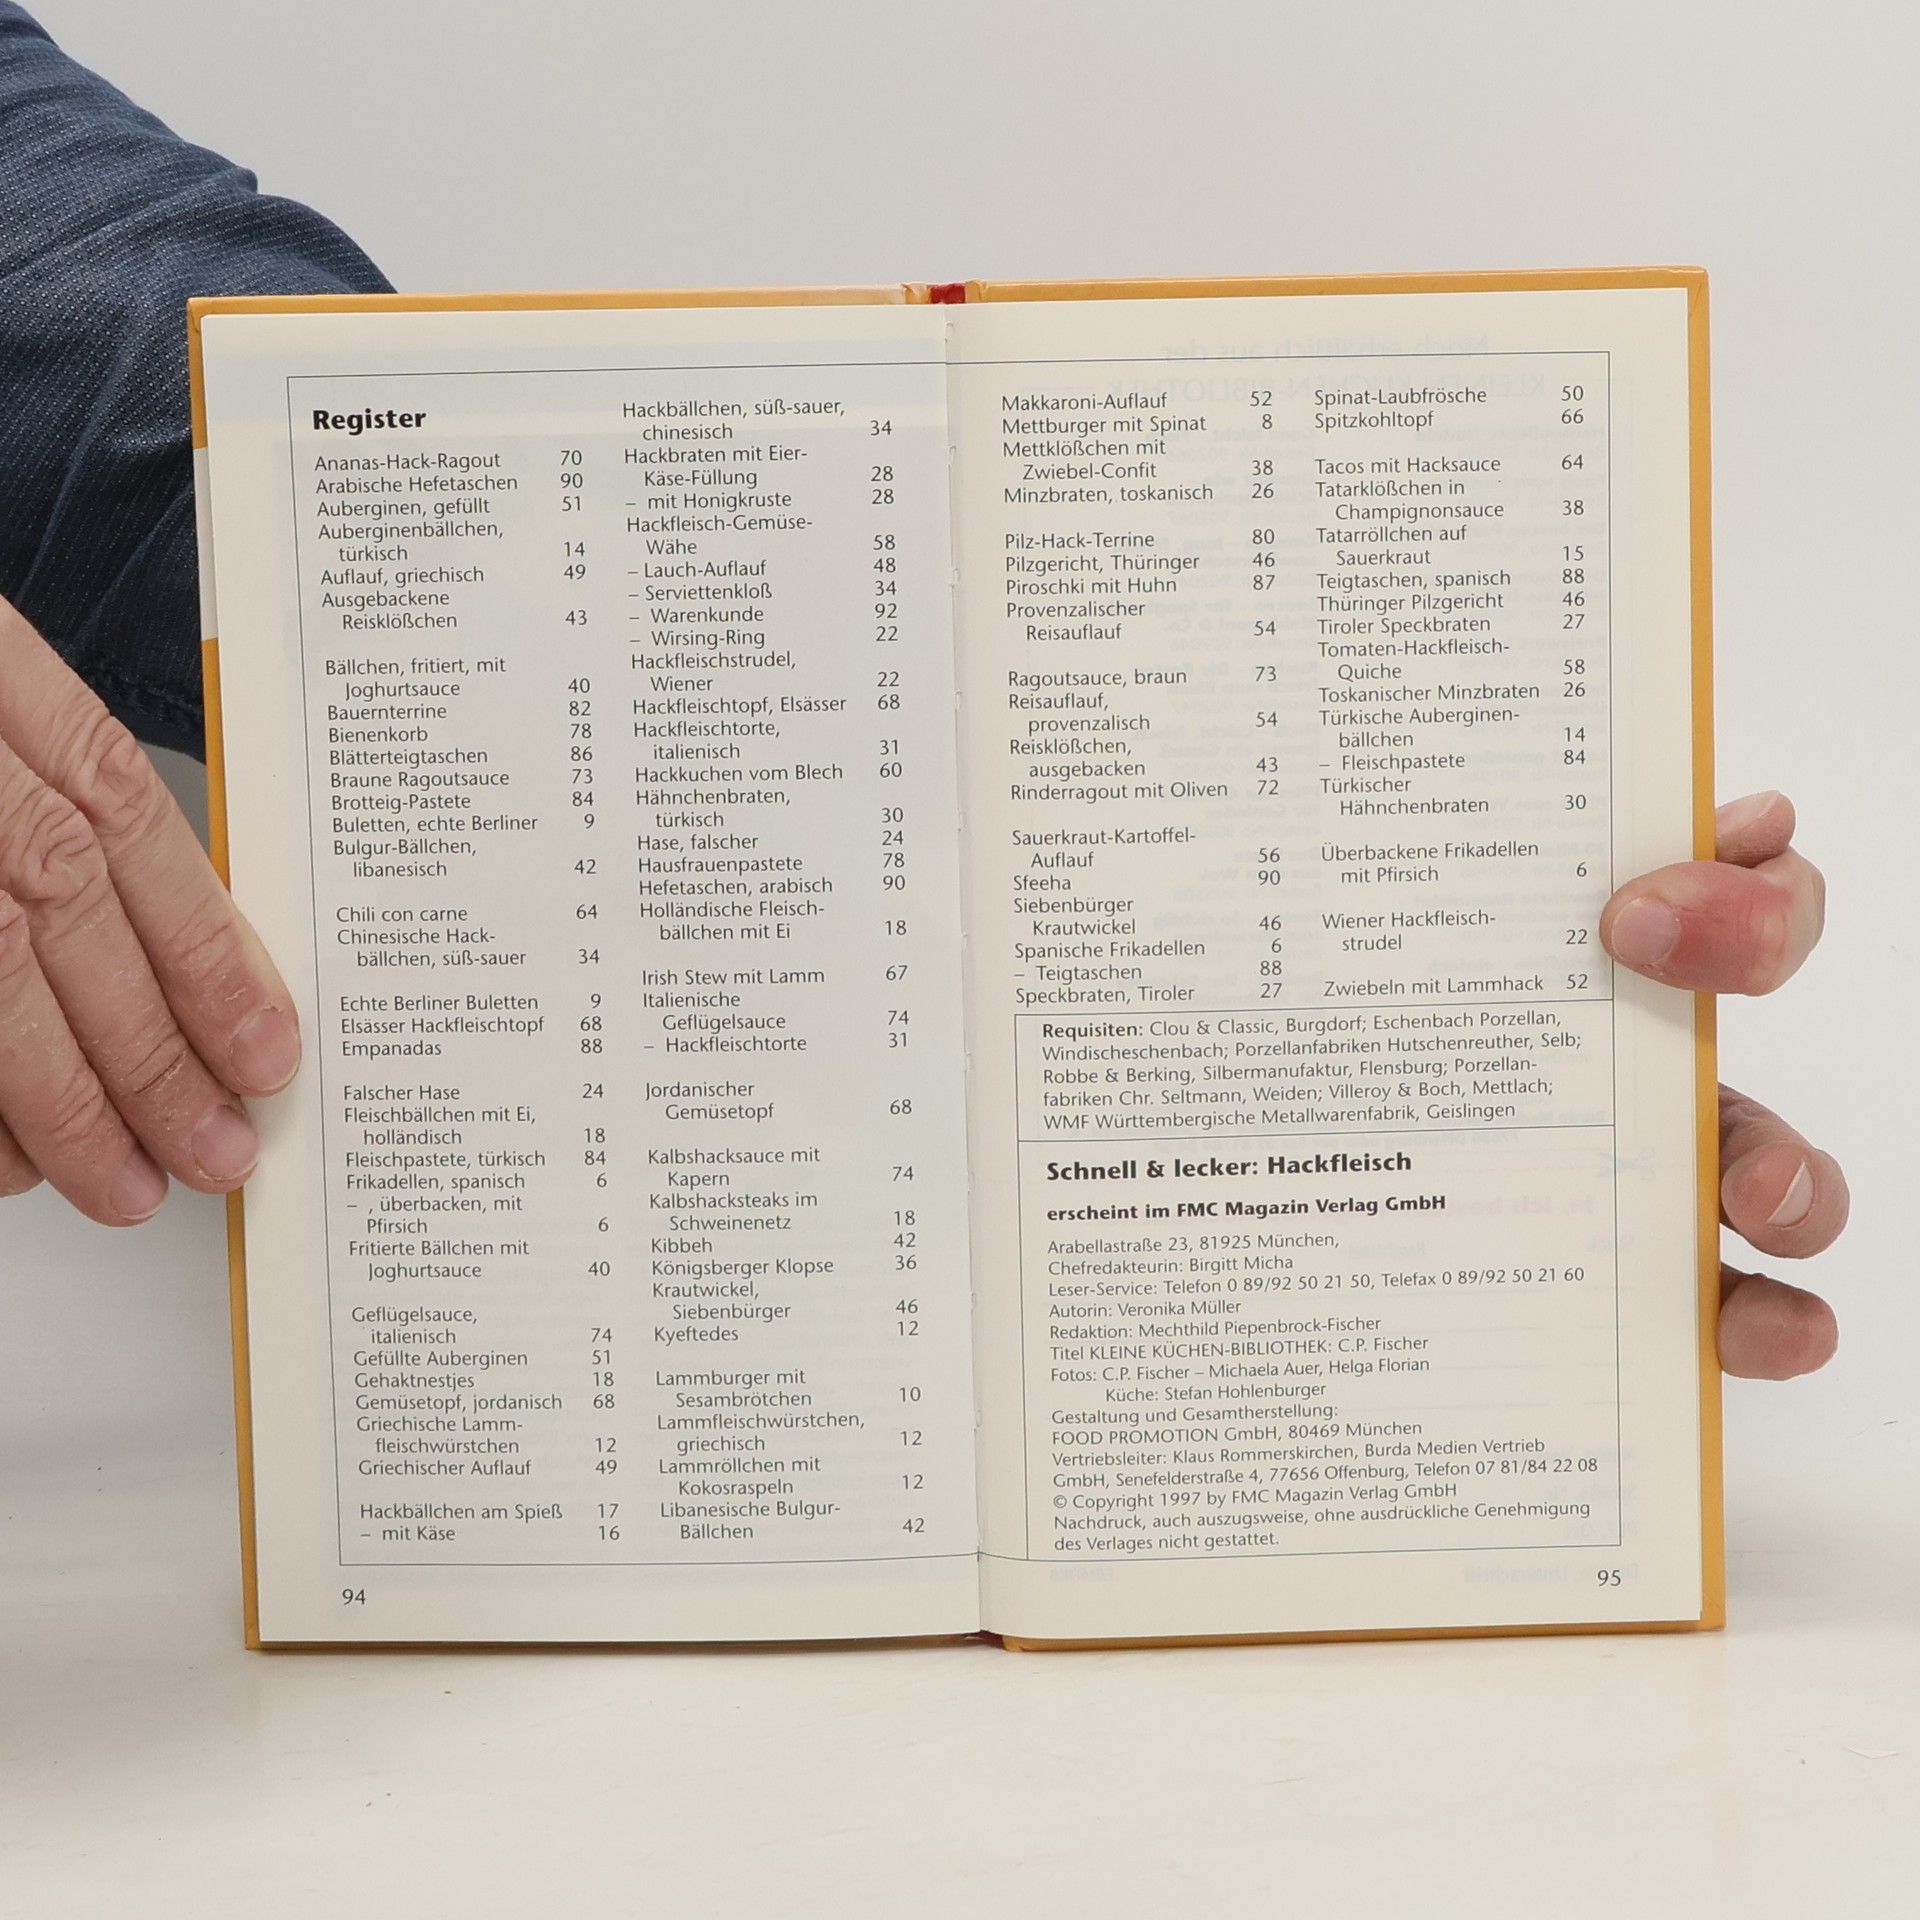 Register
Ananas-Hack-Ragout 70
Arabische Hefetaschen 90
Auberginen, gefüllt 51
Auberginenbällchen,
türkisch 14
Auflauf, griechisch 49
Ausgebackene
Reisklößchen 43
Bällchen, fritiert, mit
Joghurtsauce 40
Bauernterrine 82
Bienenkorb 78
Blätterteigtaschen 86
Braune Ragoutsauce 73
Brotteig-Pastete 84
Buletten, echte Berliner 9
Bulgur-Bällchen,
libanesisch 42
Chili con carne 64
Chinesische Hack-
bällchen, süß-sauer 34
Echte Berliner Buletten 9
Elsässer Hackfleischtopf 68
Empanadas 88
Falscher Hase 24
Fleischbällchen mit Ei,
holländisch 18
Fleischpastete, türkisch 84
Frikadellen, spanisch 6
– , überbacken, mit
Pfirsich 6
Fritierte Bällchen mit
Joghurtsauce 40
Geflügelsauce,
italienisch 74
Gefüllte Auberginen 51
Gehaktnestjes 18
Gemüsetopf, jordanisch 68
Griechische Lamm-
fleischwürstchen 12
Griechischer Auflauf 49
Hackbällchen am Spieß 17
– mit Käse 16
Hackbällchen, süß-sauer,
chinesisch 34
Hackbraten mit Eier-
Käse-Füllung 28
– mit Honigkruste 28
Hackfleisch-Gemüse-
Wähe 58
– Lauch-Auflauf 48
– Serviettenkloß 34
– Warenkunde 92
– Wirsing-Ring 22
Hackfleischstrudel,
Wiener 22
Hackfleischtopf, Elsässer 68
Hackfleischtorte,
italienisch 31
Hackkuchen vom Blech 60
Hähnchenbraten,
türkisch 30
Hase, falscher 24
Hausfrauenpastete 78
Hefetaschen, arabisch 90
Holländische Fleisch-
bällchen mit Ei 18
Irish Stew mit Lamm 67
Italienische
Geflügelsauce 74
– Hackfleischtorte 31
Jordanischer
Gemüsetopf 68
Kalbshacksauce mit
Kapern 74
Kalbshacksteaks im
Schweinenetz 18
Kibbeh 42
Königsberger Klopse 36
Krautwickel,
Siebenbürger 46
Kyeftedes 12
Lammburger mit
Sesambrötchen 10
Lammfleischwürstchen,
griechisch 12
Lammröllchen mit
Kokosraspeln 12
Libanesische Bulgur-
Bällchen 42
94
Makkaroni-Auflauf 52
Mettburger mit Spinat 8
Mettklößchen mit
Zwiebel-Confit 38
Minzbraten, toskanisch 26
Pilz-Hack-Terrine 80
Pilzgericht, Thüringer 46
Piroschki mit Huhn 87
Provenzalischer
Reisauflauf 54
Ragoutsauce, braun 73
Reisauflauf,
provenzalisch 54
Reisklößchen,
ausgebacken 43
Rinderragout mit Oliven 72
Sauerkraut-Kartoffel-
Auflauf 56
Sfeeha 90
Siebenbürger
Krautwickel 46
Spanische Frikadellen 6
– Teigtaschen 88
Speckbraten, Tiroler 27
Spinat-Laubfrösche 50
Spitzkohltopf 66
Tacos mit Hacksauce 64
Tatarklößchen in
Champignonsauce 38
Tatarröllchen auf
Sauerkraut 15
Teigtaschen, spanisch 88
Thüringer Pilzgericht 46
Tiroler Speckbraten 27
Tomaten-Hackfleisch-
Quiche 58
Toskanischer Minzbraten 26
Türkische Auberginen-
bällchen 14
– Fleischpastete 84
Türkischer
Hähnchenbraten 30
Überbackene Frikadellen
mit Pfirsich 6
Wiener Hackfleisch-
strudel 22
Zwiebeln mit Lammhack 52
Requisiten: Clou & Classic, Burgdorf; Eschenbach Porzellan,
Windischeschenbach; Porzellanfabriken Hutschenreuther, Selb;
Robbe & Berking, Silbermanufaktur, Flensburg; Porzellan-
fabriken Chr. Seltmann, Weiden; Villeroy & Boch, Mettlach;
WMF Württembergische Metallwarenfabrik, Geislingen
Schnell & lecker: Hackfleisch
erscheint im FMC Magazin Verlag GmbH
Arabellastraße 23, 81925 München,
Chefredakteurin: Birgitt Micha
Leser-Service: Telefon 0 89/92 50 21 50, Telefax 0 89/92 50 21 60
Autorin: Veronika Müller
Redaktion: Mechthild Piepenbrock-Fischer
Titel KLEINE KÜCHEN-BIBLIOTHEK: C.P. Fischer
Fotos: C.P. Fischer – Michaela Auer, Helga Florian
Küche: Stefan Hohlenburger
Gestaltung und Gesamtherstellung:
FOOD PROMOTION GmbH, 80469 München
Vertriebsleiter: Klaus Rommerskirchen, Burda Medien Vertrieb
GmbH, Senefelderstraße 4, 77656 Offenburg, Telefon 07 81/84 22 08
© Copyright 1997 by FMC Magazin Verlag GmbH
Nachdruck, auch auszugsweise, ohne ausdrückliche Genehmigung
des Verlages nicht gestattet.
95